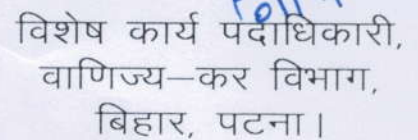 विशेष कार्य पदाधिकारी,
वाणिज्य–कर विभाग,
बिहार, पटना।